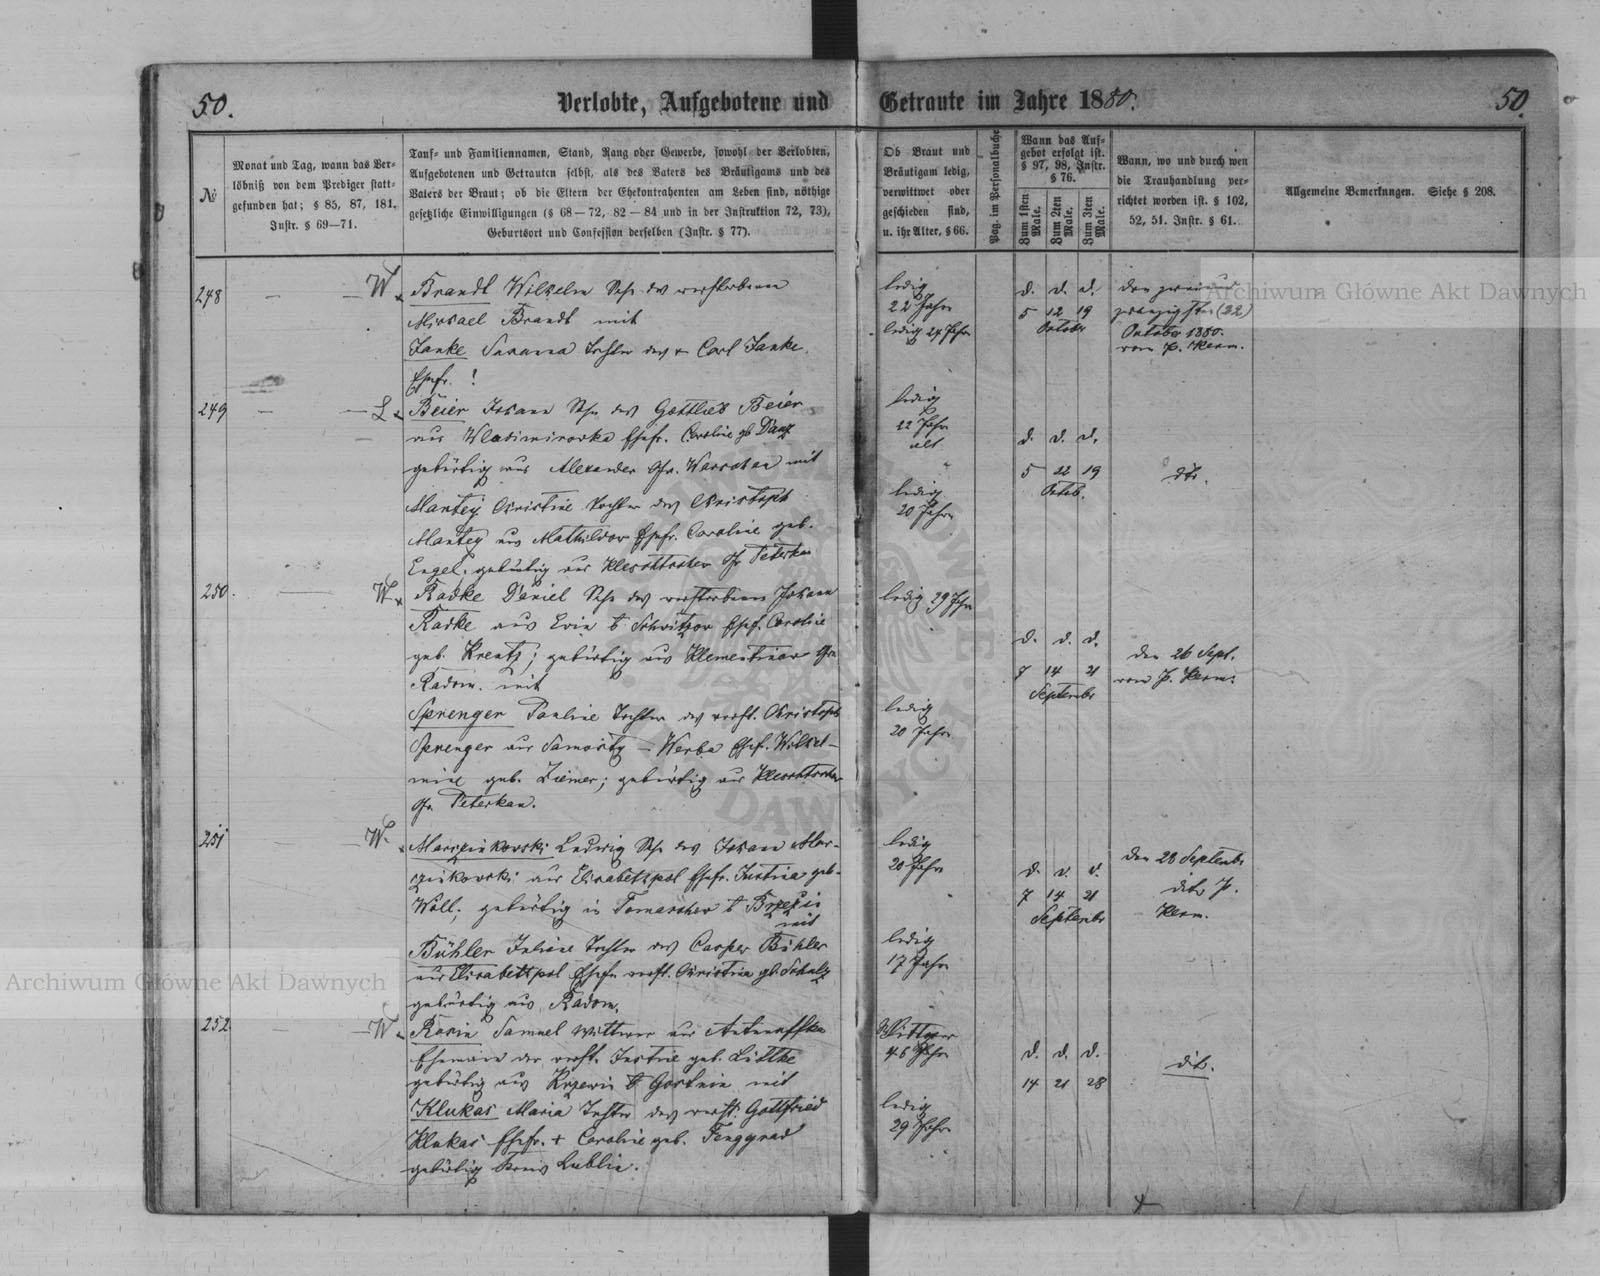 50.
Verlobte, Aufgebotene und
Getraute im Jahre 1880.
50.
№
Monat und Tag, wann das Ver-
löbniß von dem Prediger statt-
gefunden hat; § 85, 87, 181,
Instr. § 69—71.
Tauf- und Familiennamen, Stand, Rang oder Gewerbe, sowohl der Verlobten,
Aufgebotenen und Getrauten selbst, als des Vaters des Bräutigams und des
Vaters der Braut; ob die Eltern der Ehekontrahenten am Leben sind, nöthige
gesetzliche Einwilligungen (§ 68—72, 82—84 und in der Instruktion 72, 73),
Geburtsort und Confession derselben (Instr. § 77).
Ob Braut und
Bräutigam ledig,
verwittwet oder
geschieden sind,
u. ihr Alter, § 66.
Pag. im Personalbuche
Wann das Auf-
gebot erfolgt ist.
§ 97, 98, Instr.
§ 76.
Zum 1sten Male.
Zum 2ten Male.
Zum 3ten Male.
Wann, wo und durch wen
die Trauhandlung ver-
richtet worden ist. § 102,
52, 51. Instr. § 61.
Allgemeine Bemerkungen. Siehe § 208.
248 — — W
Brandt Wilhelm Sohn des verstorbenen
Michael Brandt mit
Janke Susanna Tochter des + Carl Janke.
Ehefr. !
ledig
22 Jahr
ledig 24 Jahr
d. d. d.
5 12 19
October
den zweiund
zwanzigsten (22)
October 1880.
vom P. Kerm.
249 — — L
Beier Johann Sohn des Gottlieb Beier
aus Wladimirowka Ehefr. Caroline gb Danz
gebürtig aus Alexander Gv. Warschau mit
Mantey Christine Tochter des Christoph
Mantey aus Mathildow Ehefr. Caroline geb.
Engel, gebürtig aus
ledig
22 Jahr
alt
ledig
20 Jahr
d. d. d.
5 22 19
Octob.
dito.
250. — W
Radke Daniel Sohn des verstorbenen Johann
Radke aus Ehefr. Caroline
geb. Krentz; gebürtig aus Klementinow Gv.
Radom. mit
Sprenger Pauline Tochter des verst. Christoph
Sprenger aus Samosty — Werba Ehef. Wilhel-
mine geb. Ziemer; gebürtig aus
Gv. Peterkau.
ledig 29 Jahr
ledig
20 Jahr
d. d. d.
7 14 21
September
den 26 Sept.
vom P. Kerm.
251 — W.
Marzinkowski Ludwig Sohn des Johann Mar-
zinkowski aus Elisabethpol Ehefr. Justina geb.
Woll; gebürtig in Tomaschew
mit
Bühler Juliane Tochter des Casper Bühler
aus Elisabethpol Ehefr. verst. Christina gb. Schulz
gebürtig aus Radom.
ledig
20 Jahr
ledig
17 Jahr
d. d. d.
7 14 21
September
den 28 September
dito P.
Kerm.
252 — W
Samuel Wittwer aus
Ehemann der verst. Justine geb. Littke
gebürtig aus mit
Klukas Maria Tochter des verst. Gottfried
Klukas Ehefr. + Caroline geb.
gebürtig Kreis Lublin.
Wittwer
46 Jahr
ledig
29 Jahr
d. d. d.
14 21 28
dito.
Archiwum Główne Akt Dawnych
Archiwum Główne Akt Dawnych